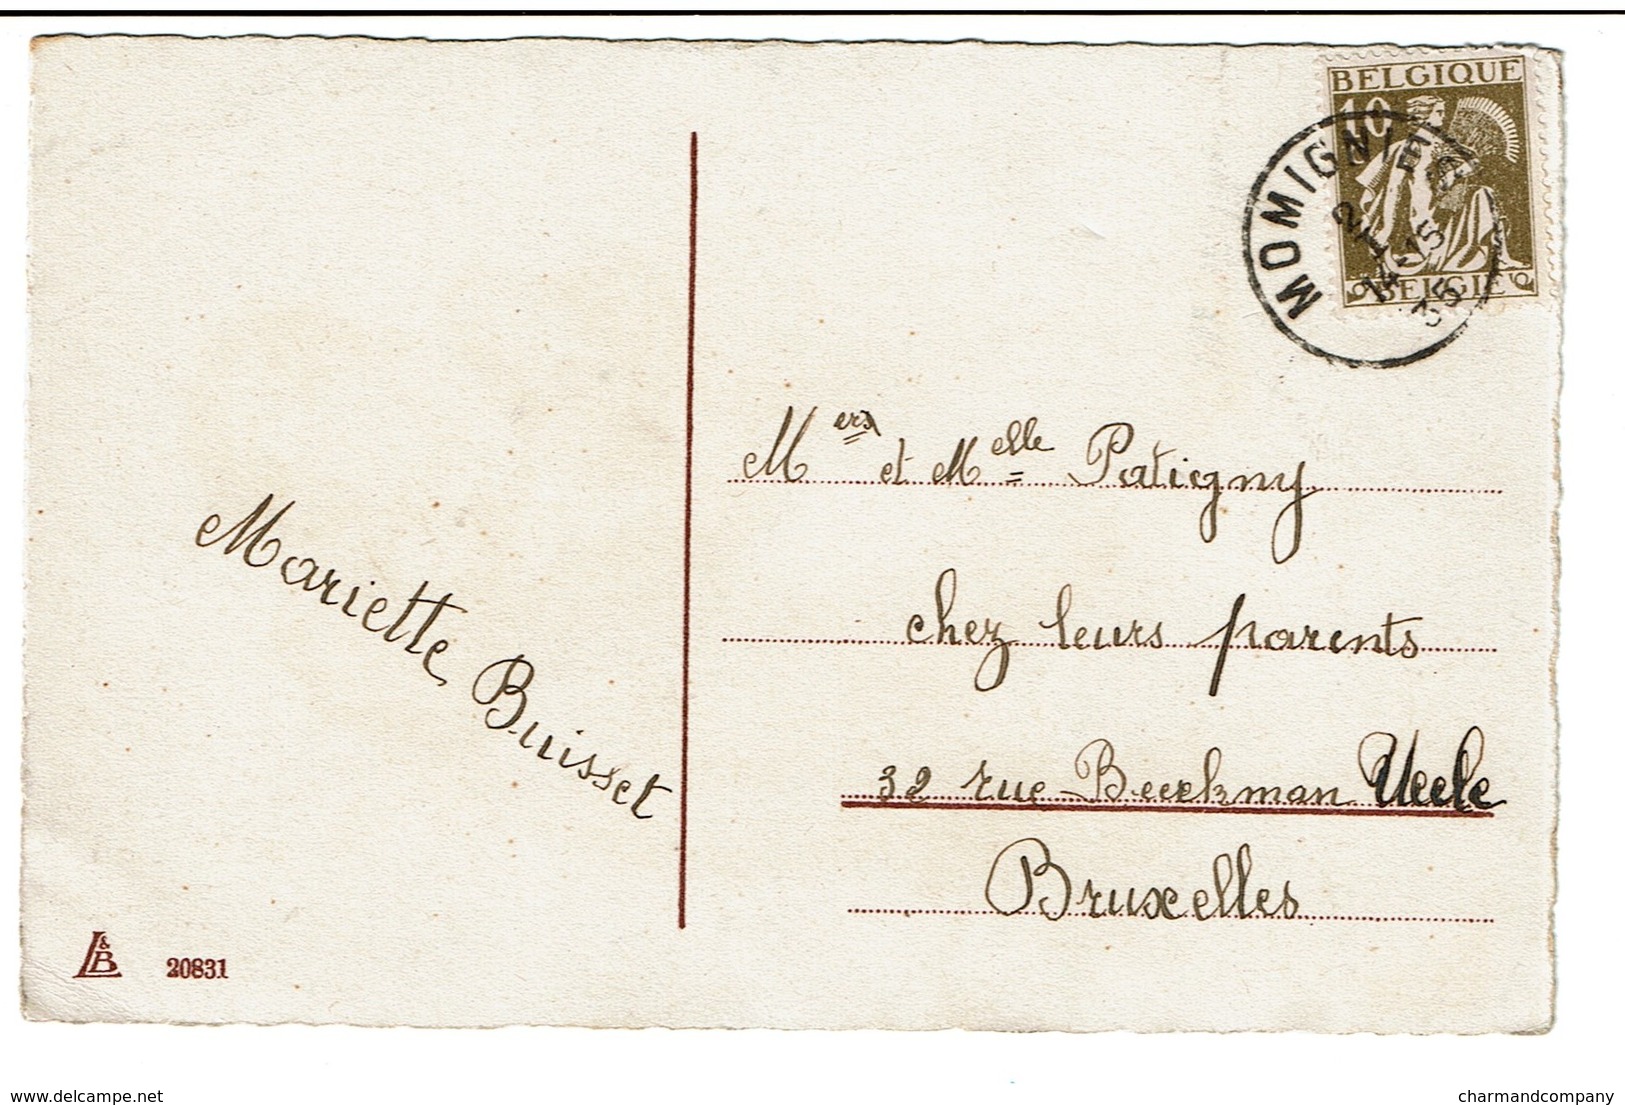 BELGIQUE
10
MOMIGNIES
2 I
14-15
35
BELGIE
Mers et Melle Patigny
chez leurs parents
32 rue Beeckman Uccle
Bruxelles
Mariette Buisset
L&B 20831
www.delcampe.net
charmandcompany